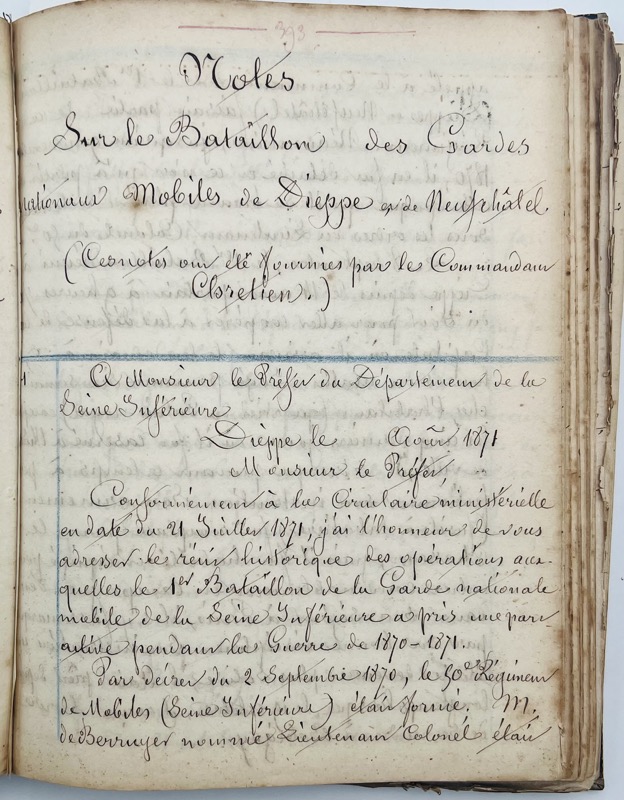 393
Notes
Sur le Bataillon des Gardes
nationaux Mobiles de Dieppe et de Neufchâtel.
(Ces notes ont été fournies par le Commandant
Chrétien.)
1
A Monsieur le Préfet du Département de la
Seine Inférieure
Dieppe le Août 1871
Monsieur le Préfet,
Conformément à la Circulaire ministérielle
en date du 21 Juillet 1871, j'ai l'honneur de vous
adresser le récit historique des opérations aux-
quelles le 1er Bataillon de la Garde nationale
mobile de la Seine Inférieure a pris une part
active pendant la Guerre de 1870-1871.
Par décret du 2 Septembre 1870, le 50e Régiment
de Mobiles (Seine Inférieure) était formé. M.
de Berruyer nommé Lieutenant Colonel était